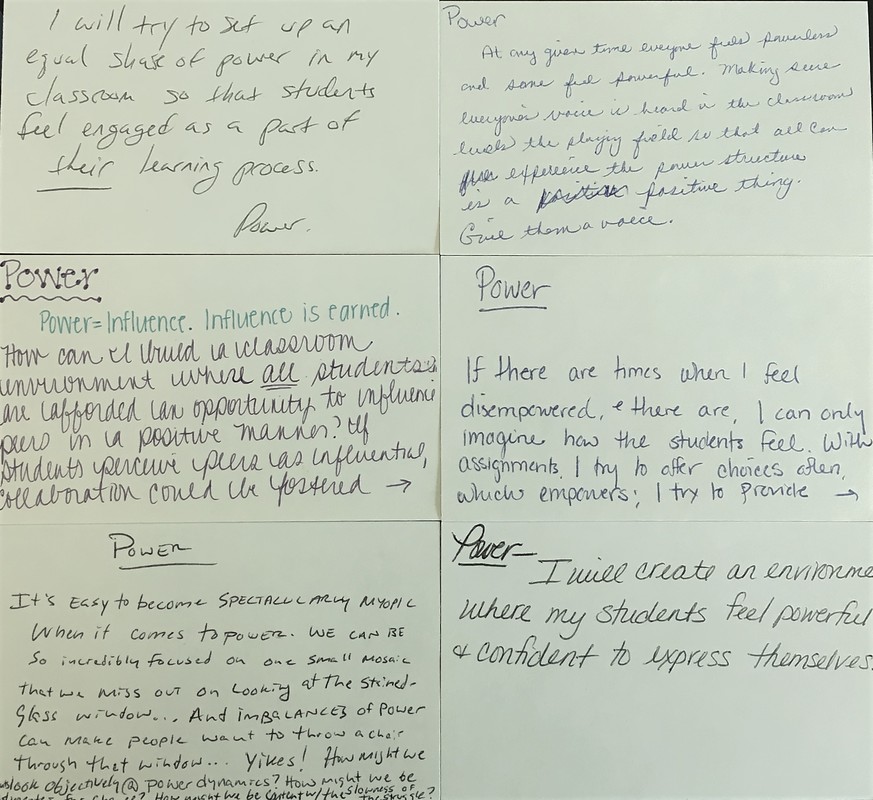 I will try to set up an
equal share of power in my
classroom so that students
feel engaged as a part of
their learning process.
Power.
Power
At any given time everyone feels powerless
and some feel powerful. Making sure
everyone's voice is heard in the classroom
levels the playing field so that all can
experience the power structure
is a positive thing.
Give them a voice.
Power
Power=Influence. Influence is earned.
How can I build a classroom
environment where all students
are afforded an opportunity to influence
peers in a positive manner? If
students perceive peers as influential,
collaboration could be fostered →
Power
If there are times when I feel
disempowered, & there are, I can only
imagine how the students feel. With
assignments, I try to offer choices often,
which empowers; I try to provide →
POWER
It's Easy to become SPECTACULARLY MYOPIC
When it comes to POWER. WE CAN BE
So incredibly focused on one small mosaic
that we miss out on looking at the stained-
glass window... And IMBALANCES of Power
can make people want to throw a chair
through that window... Yikes! How might we
look objectively @ power dynamics? How might we be
How might we be content w/ the slowness of
the struggle?
Power-
I will create an environme
where my students feel powerful
& confident to express themselves.